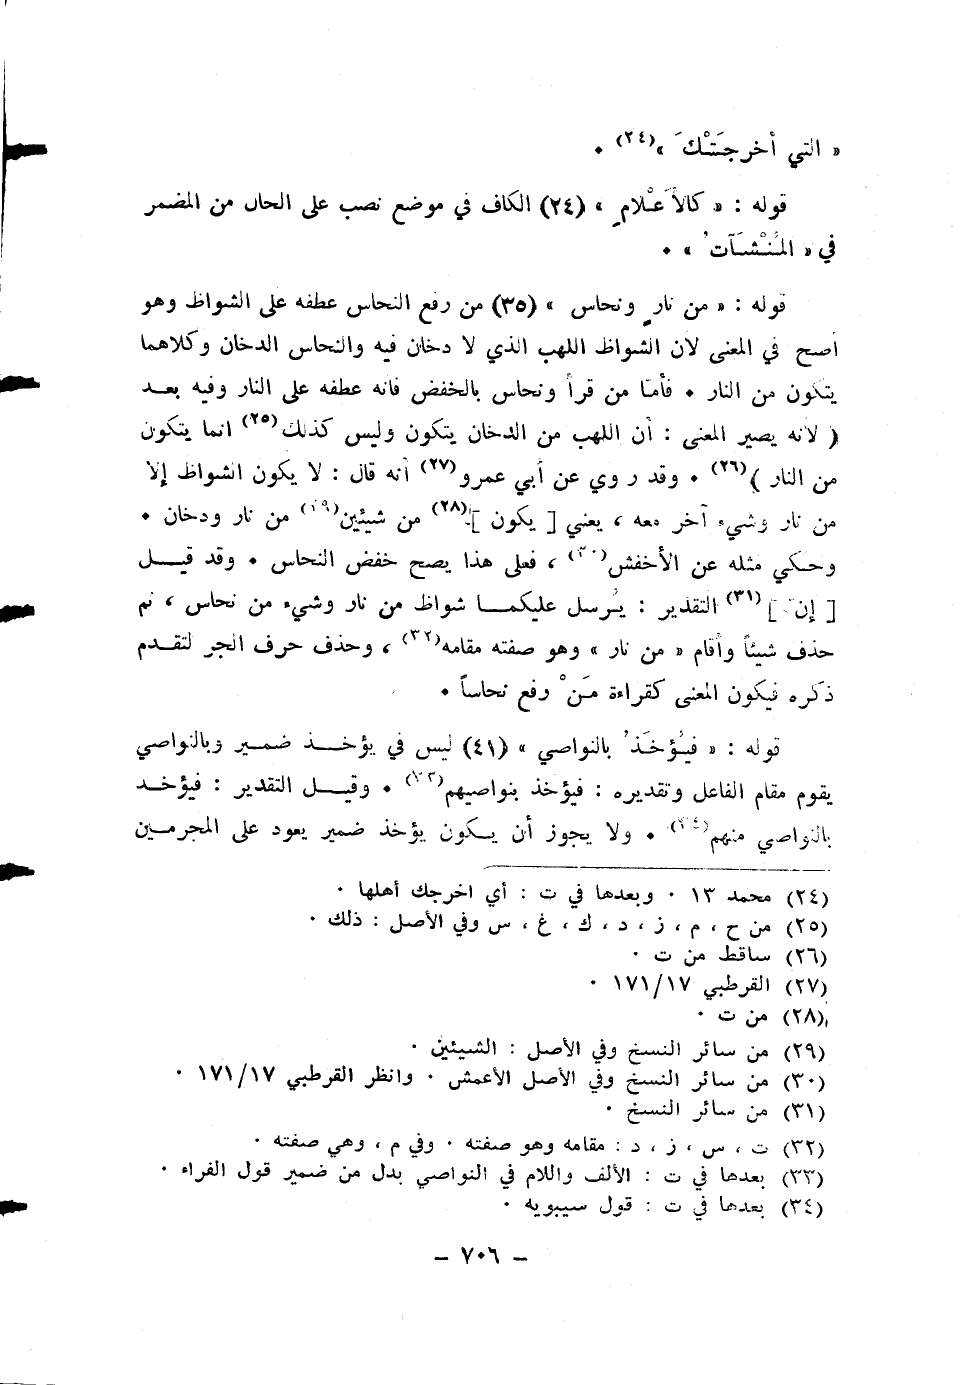 « التي أخرجَتْكَ »(٢٤) ٠
قوله : « كالأَعْلامِ » (٢٤) الكاف في موضع نصب على الحال من المضمر
في « المُنْشَآتُ » ٠
قوله : « من نارٍ ونحاس » (٣٥) من رفع النحاس عطفه على الشواظ وهو
أصح في المعنى لان الشواظ اللهب الذي لا دخان فيه والنحاس الدخان وكلاهما
يتكون من النار ٠ فأما من قرأ ونحاس بالخفض فانه عطفه على النار وفيه بعد
( لانه يصير المعنى : أن اللهب من الدخان يتكون وليس كذلك(٢٥) انما يتكون
من النار )(٢٦) ٠ وقد روي عن أبي عمرو(٢٧) أنه قال : لا يكون الشواظ إلا
من نار وشيء آخر معه ، يعني [ يكون ](٢٨) من شيئين(٢٩) من نار ودخان ٠
وحكي مثله عن الأخفش(٣٠) ، فعلى هذا يصح خفض النحاس ٠ وقد قيل
[ إنّ ](٣١) التقدير : يُرسل عليكما شواظ من نار وشيء من نحاس ، ثم
حذف شيئاً وأقام « من نار » وهو صفته مقامه(٣٢) ، وحذف حرف الجر لتقدم
ذكره فيكون المعنى كقراءة مَنْ رفع نحاساً ٠
قوله : « فيُؤخَذُ بالنواصي » (٤١) ليس في يؤخذ ضمير وبالنواصي
يقوم مقام الفاعل وتقديره : فيؤخذ بنواصيهم(٣٣) ٠ وقيل التقدير : فيؤخذ
بالنواصي منهم(٣٤) ٠ ولا يجوز أن يكون يؤخذ ضمير يعود على المجرمين
(٢٤) محمد ١٣ ٠ وبعدها في ت : أي اخرجك أهلها ٠
(٢٥) من ح ، م ، ز ، د ، ك ، غ ، س وفي الأصل : ذلك ٠
(٢٦) ساقط من ت ٠
(٢٧) القرطبي ١٧١/١٧ ٠
(٢٨) من ت ٠
(٢٩) من سائر النسخ وفي الأصل : الشيئين ٠
(٣٠) من سائر النسخ وفي الأصل الأعمش ٠ وانظر القرطبي ١٧١/١٧ ٠
(٣١) من سائر النسخ ٠
(٣٢) ت ، س ، ز ، د : مقامه وهو صفته ٠ وفي م ، وهي صفته ٠
(٣٣) بعدها في ت : الألف واللام في النواصي بدل من ضمير قول الفراء ٠
(٣٤) بعدها في ت : قول سيبويه ٠
– ٧٠٦ –